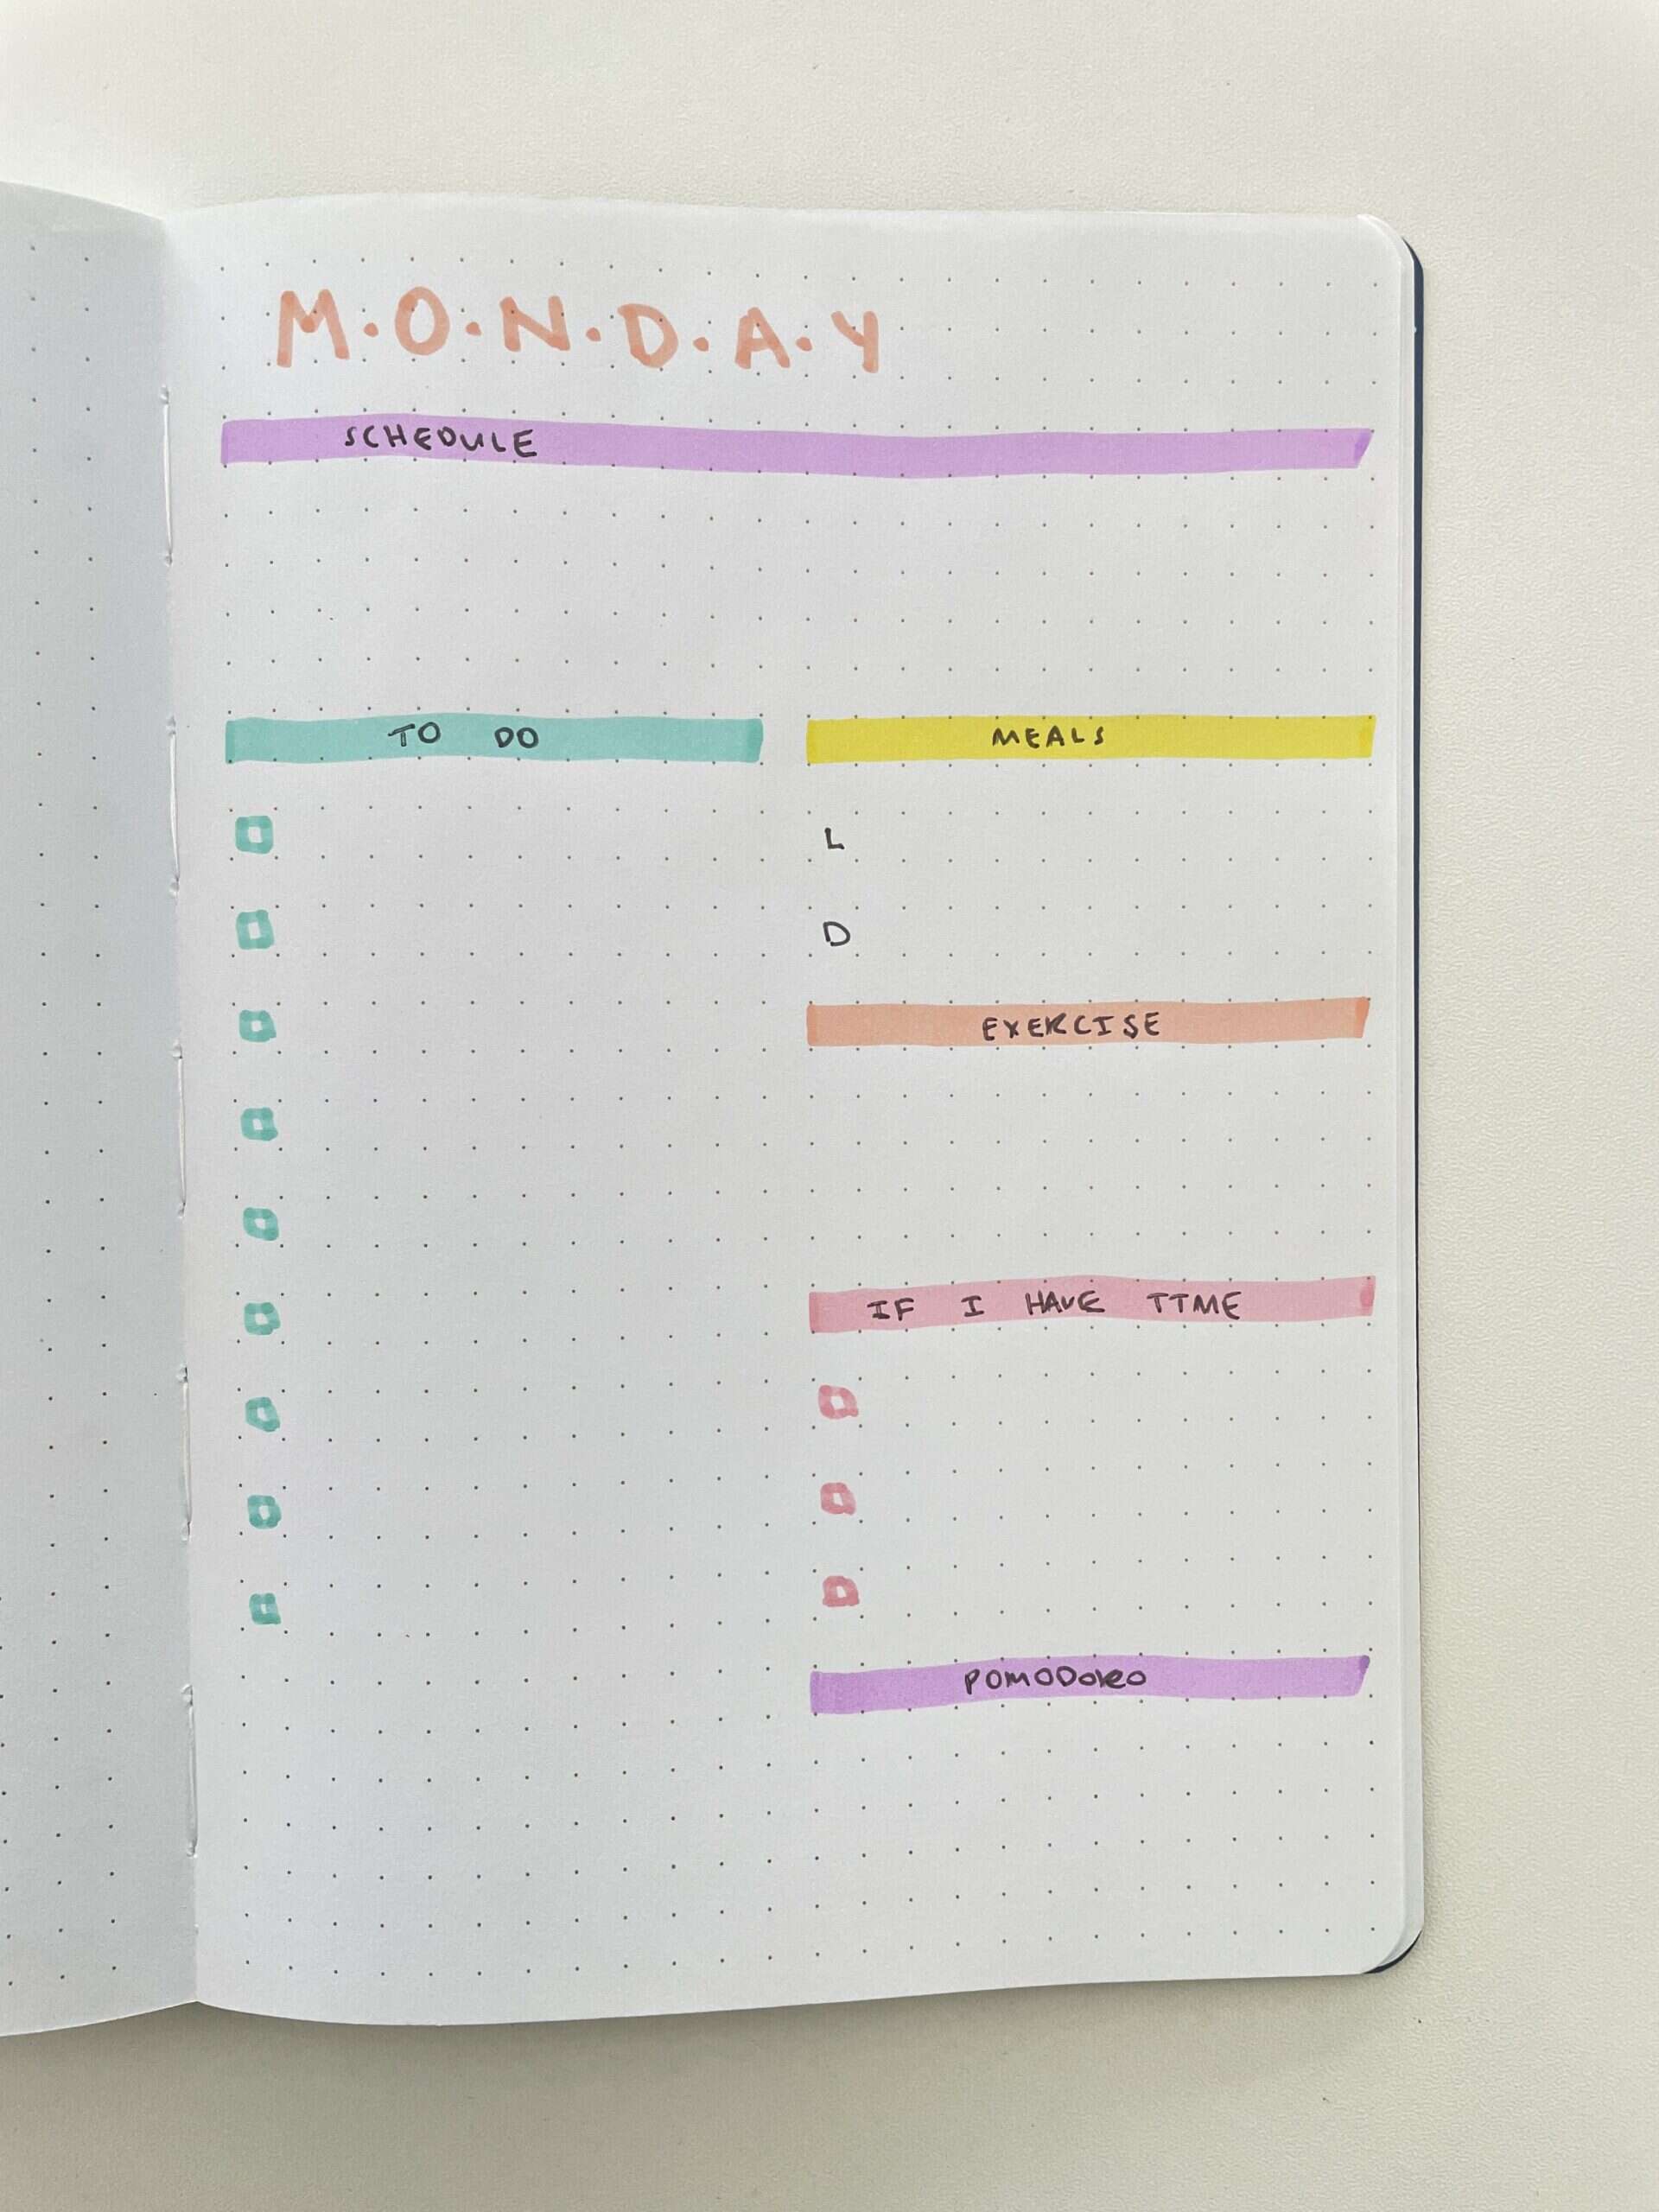 M·O·N·D·A·Y
SCHEDULE
TO DO
MEALS
L
D
EXERCISE
IF I HAVE TIME
POMODORO